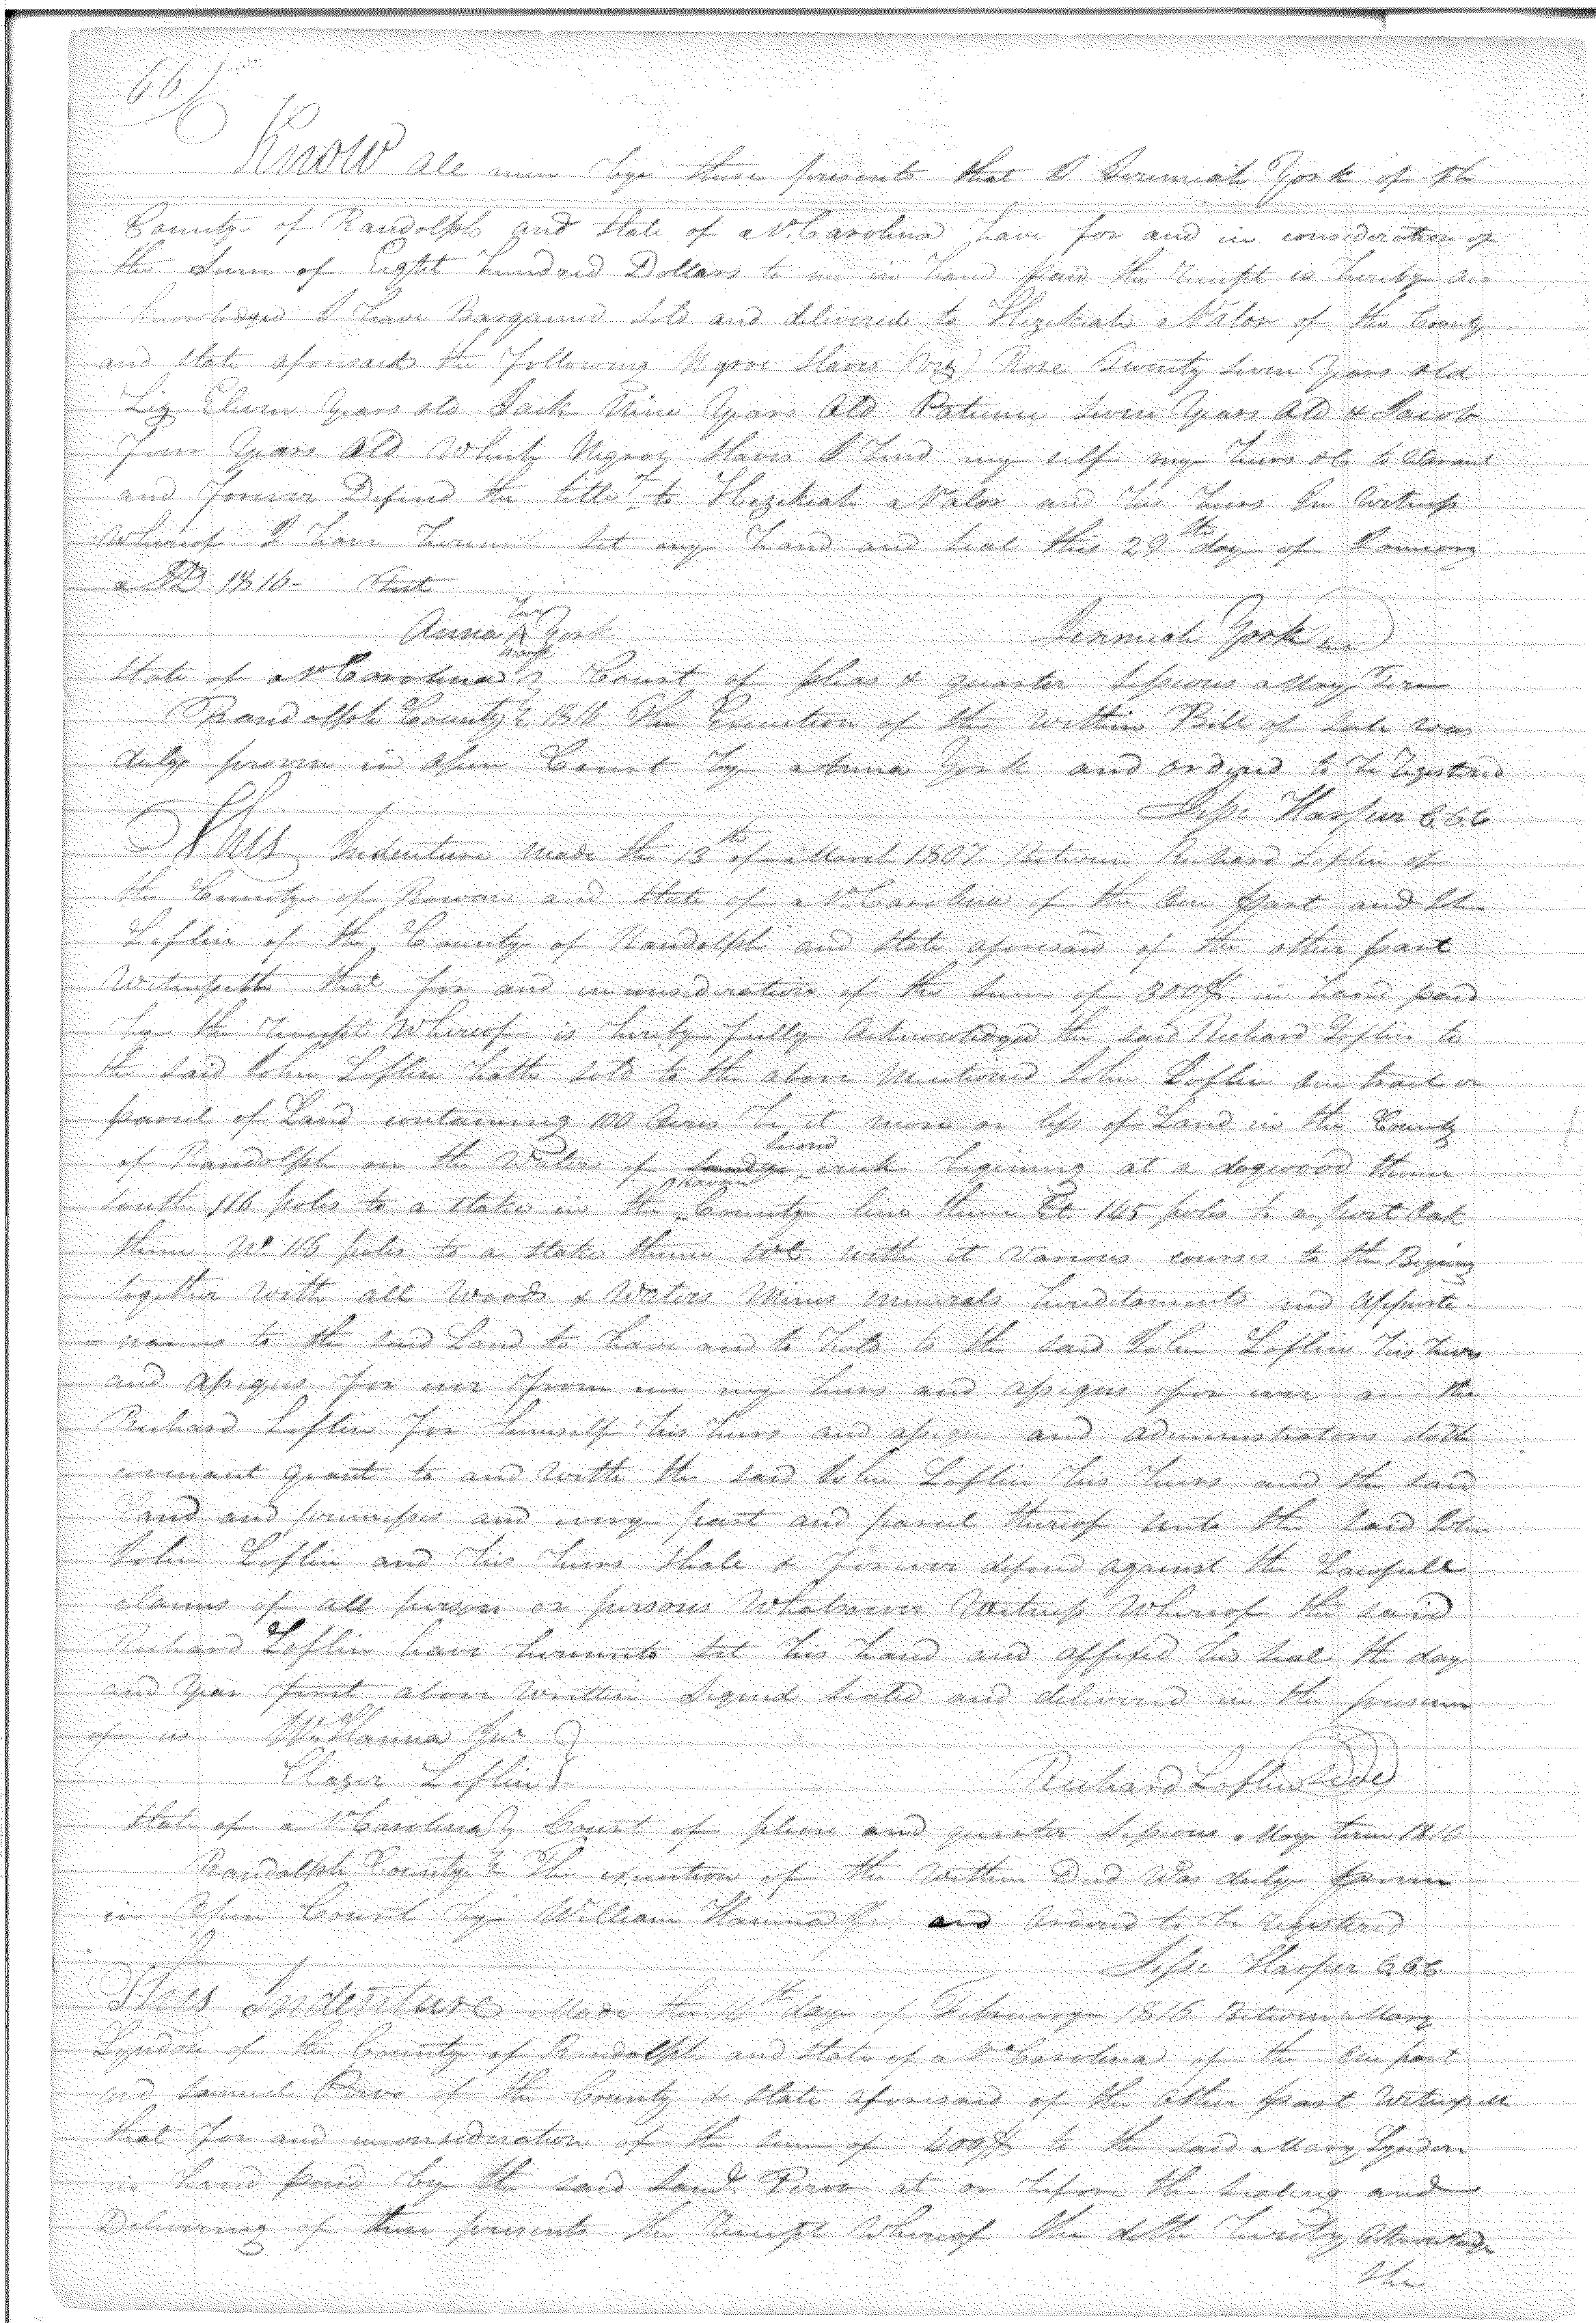 66
Know all men bye these presents that I Jeremiah York of the
County of Randolph and State of N. Carolina have for and in consideration of
the Sum of Eight hundred Dollars to me in hand paid the receipt is hereby ac
knowledged I have Bargained sold and delivered to Hezekiah of the County
and State aforesaid the following Negroe Slaves (viz) Rose Twenty seven Years old
Liz Eleven Years old Jack Nine Years Old Patience seven Years Old & Jacob
Four Years Old Which Negroy slaves I bind my self my heirs &c to Warant
and forever Defend the title to Hezekiah and his heirs In Witness
Whereof I have hereunto set my hand and seal this 29th day of January
AD 1816 – Test
her
Anna A York Jeremiah York
mark
State of N Carolina } Court of pleas & quarter Sessions May Term
Randolph County } 1816 The Execution of the within Bill of sale was
duly proven in open Court by Anna York and ordered to be registered
Jesse Harper C C C
This Indenture made the 13th of March 1807 Between Richard Loflin of
the County of Rowan and State of N Carolina of the one part and
Loflin of the County of Randolph and State aforesaid of the other part
Witnesseth that for and in consideration of the sum of 300$ in hand paid
by the receipt Whereof is hereby fully Acknowledged the said Richard Loflin to
the said John Loflin hath sold to the above mentioned John Loflin one tract or
parcel of Land containing 100 Acres be it more or less of Land in the County
of Randolph on the Waters of creek begining at a dogwood thence
South 116 poles to a stake in the Rowan County line thence Et 145 poles to a post Oak
thence No 116 poles to a stake thence with it various courses to the Begining
together with all Woods & Waters Mines minerals hereditaments and Appurte-
nances to the said Land to have and to hold to the said John Loflin his heirs
and assigns for ever from me my heirs and assigns for ever and the
Richard Loflin for himself his heirs and assigns and administrators doth
covenant grant to and with the said John Loflin his heirs and the said
Land and premisses and every part and parcel thereof unto the said John
John Loflin and his heirs shall & forever defend against the Lawfull
claims of all person or persons Whatsoever Witness Whereof the said
Richard Loflin have hereunto set his hand and affixed his seal the day
and Year first above written Signed sealed and delivered in the presence
of us Wm Hanna Jnr }
Loflin } Richard Loflin seal
State of N Carolina } Court of pleas and quarter Sessions May term 1816
Randolph County } The execution of the within Deed Was duly proven
in Open Court by William Hanna Jr. and Ordered to be registered
Jesse Harper C C C
This Indenture Made the 16th day of February 1816 Between Mary
Lyndon of the County of Randolph and State of N Carolina of the One part
and Samuel of the County & State aforesaid of the Other part Witnesseth
that for and inconsideration of the sum of 400$ to the said Mary Lyndon
in hand paid by the said Saml. at or before the sealing and
Delivering of these presents the receipt Whereof the doth hereby Acknowledge
the